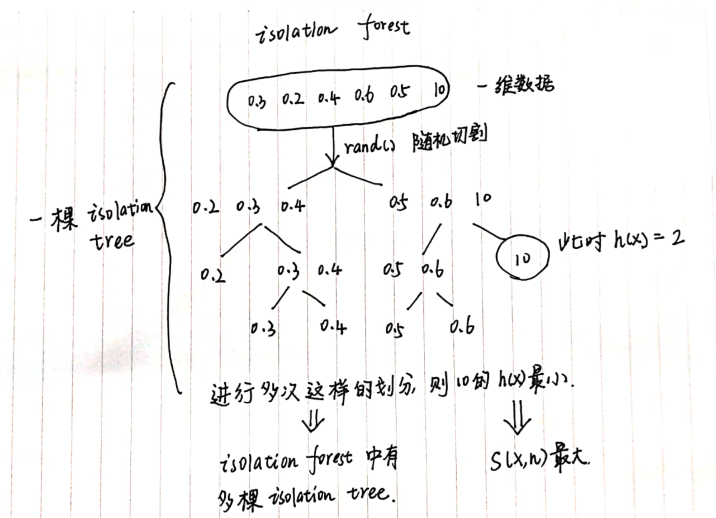 isolation forest
0.3 0.2 0.4 0.6 0.5 10 一维数据
rand() 随机切割
一棵 isolation tree
0.2 0.3 0.4 0.5 0.6 10
0.2 0.3 0.4 0.5 0.6 10 此时 h(x) = 2
0.3 0.4 0.5 0.6
进行多次这样的划分, 则10的 h(x)最小.
isolation forest 中有 S(x,n)最大.
多棵 isolation tree.